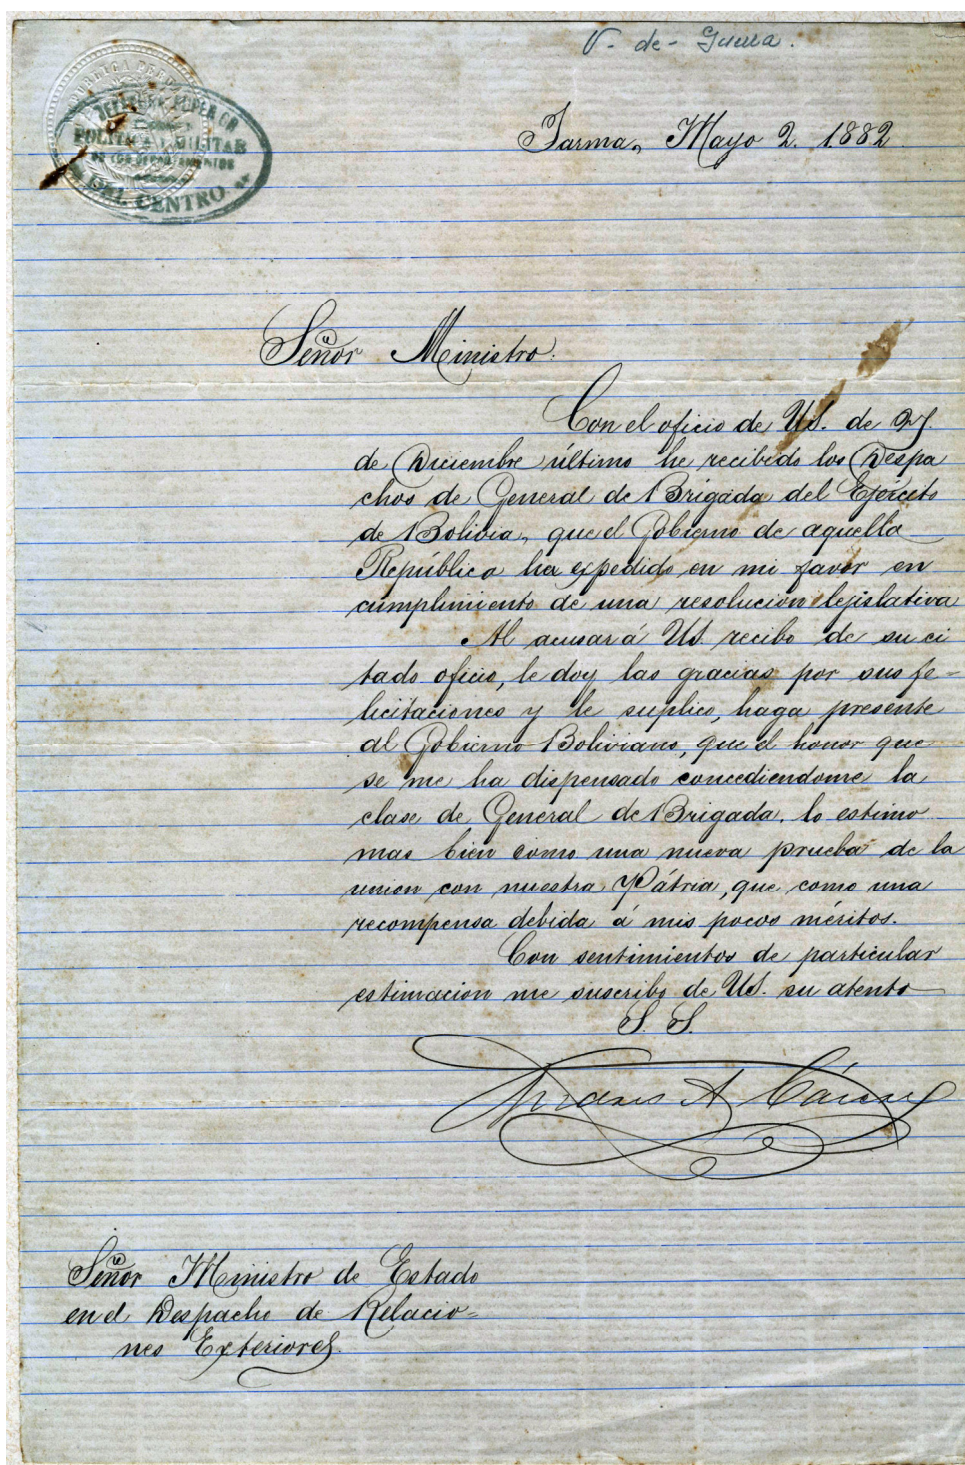 V. de - Guerra.
REPUBLICA PERUANA
JEFATURA SUPERIOR
POLITICA Y MILITAR
DE LOS DEPARTAMENTOS
DEL CENTRO
Tarma, Mayo 2. 1882
Señor Ministro.
Con el oficio de US. de 27
de Diciembre último he recibido los Despa
chos de General de Brigada del Ejército
de Bolivia, que el Gobierno de aquella
República ha expedido en mi favor en
cumplimiento de una resolucion lejislativa
Al acusar á US. recibo de su ci
tado oficio, le doy las gracias por sus fe-
licitaciones y le suplico, haga presente
al Gobierno Boliviano, que el honor que
se me ha dispensado concediendome la
clase de General de Brigada, lo estimo
mas bien como una nueva prueba de la
union con nuestra Pátria, que como una
recompensa debida á mis pocos méritos.
Con sentimientos de particular
estimacion me suscribo de US. su atento
S. S.
Andres A Cáceres
Señor Ministro de Estado
en el Despacho de Relacio-
nes Exteriores.